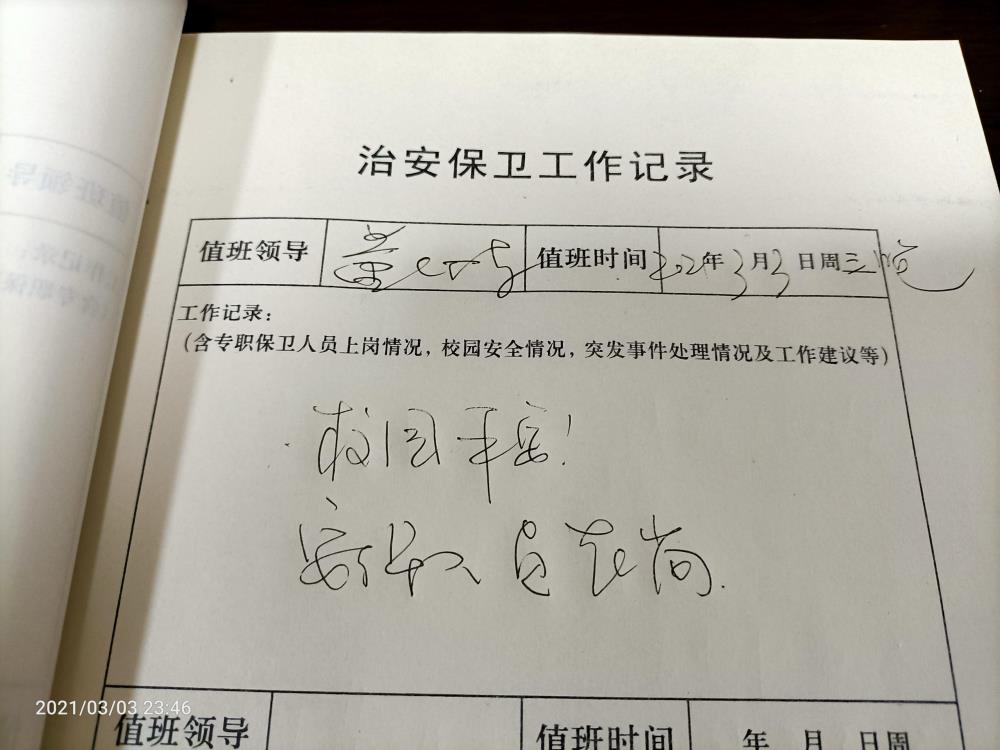 治安保卫工作记录
值班领导 值班时间 2021年3月3日周三晚
工作记录：
（含专职保卫人员上岗情况，校园安全情况，突发事件处理情况及工作建议等）
校园平安！
安保人员在岗.
2021/03/03 23:46
值班领导 值班时间 年 月 日周